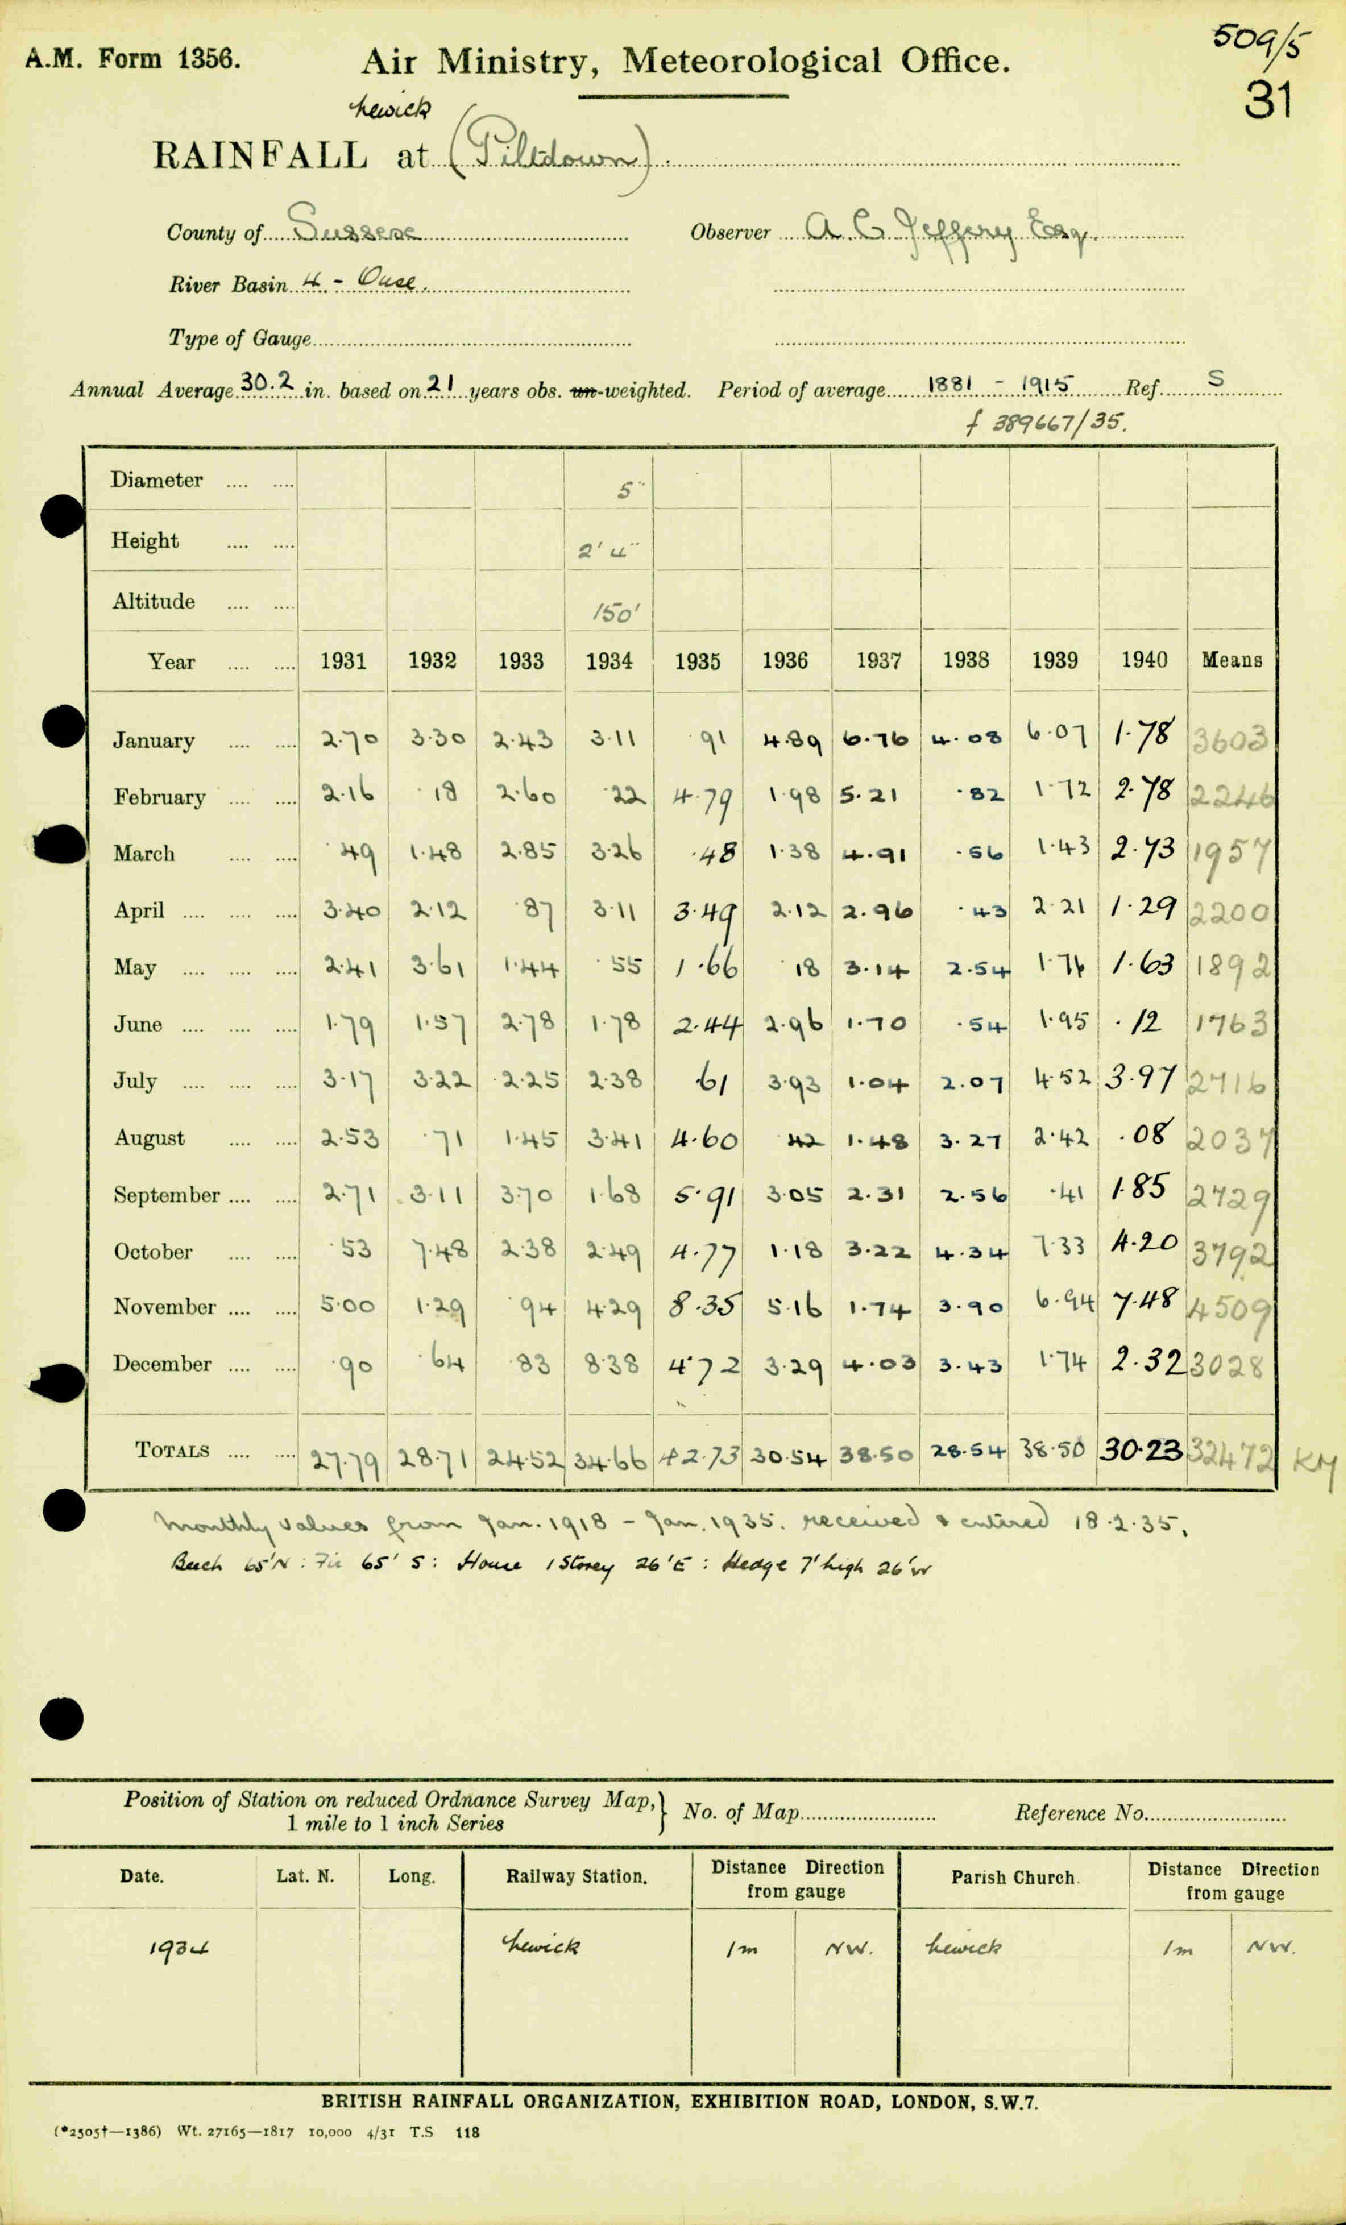 509/5
A.M. Form 1356. Air Ministry, Meteorological Office.
31
RAINFALL at (Piltdown).
County of Sussex Observer A. C. Jeffery Esq.
River Basin 4. - Ouse.
Type of Gauge
Annual Average 30.2 in. based on 21 years obs. un-weighted. Period of average 1881 - 1915 Ref. S
f 389667/35.
Diameter .... .... 5"
Height .... .... 2' 4"
Altitude .... .... 150'
Year .... .... 1931 1932 1933 1934 1935 1936 1937 1938 1939 1940 Means
January .... .... 2.70 3.30 2.43 3.11 .91 4.89 6.76 4.08 6.07 1.78 3603
February .... .... 2.16 .18 2.60 .22 4.79 1.98 5.21 .82 1.72 2.78 2246
March .... .... .49 1.48 2.85 3.26 .48 1.38 4.91 .56 1.43 2.73 1957
April .... .... .... 3.40 2.12 .87 3.11 3.49 2.12 2.96 .43 2.21 1.29 2200
May .... .... .... 2.41 3.61 1.44 .55 1.66 .18 3.14 2.54 1.76 1.63 1892
June .... .... .... 1.79 1.57 2.78 1.78 2.44 2.96 1.70 .54 1.95 .12 1763
July .... .... .... 3.17 3.22 2.25 2.38 .61 3.93 1.04 2.07 4.52 3.97 2716
August .... .... 2.53 .71 1.45 3.41 4.60 .42 1.48 3.27 2.42 .08 2037
September .... .... 2.71 3.11 3.70 1.68 5.91 3.05 2.31 2.56 .41 1.85 2729
October .... .... .53 7.48 2.38 2.49 4.77 1.18 3.22 4.34 7.33 4.20 3792
November .... .... 5.00 1.29 .94 4.29 8.35 5.16 1.74 3.90 6.94 7.48 4509
December .... .... .90 .64 .83 8.38 4.72 3.29 4.03 3.43 1.74 2.32 3028
TOTALS .... .... 27.79 28.71 24.52 34.66 42.73 30.54 38.50 28.54 38.50 30.23 32472 KM
Monthly values from Jan. 1918 - Jan. 1935. received & entered 18.2.35.
Beech 65'N : Fir 65' S : House 1 Storey 26'E : Hedge 7' high 26'W
Position of Station on reduced Ordnance Survey Map, } No. of Map Reference No.
1 mile to 1 inch Series
Date. Lat. N. Long. Railway Station. Distance Direction from gauge Parish Church. Distance Direction from gauge
1934 1m NW. 1m NW.
BRITISH RAINFALL ORGANIZATION, EXHIBITION ROAD, LONDON, S.W.7.
(*2505†—1386) Wt. 27165—1817 10,000 4/31 T.S 118